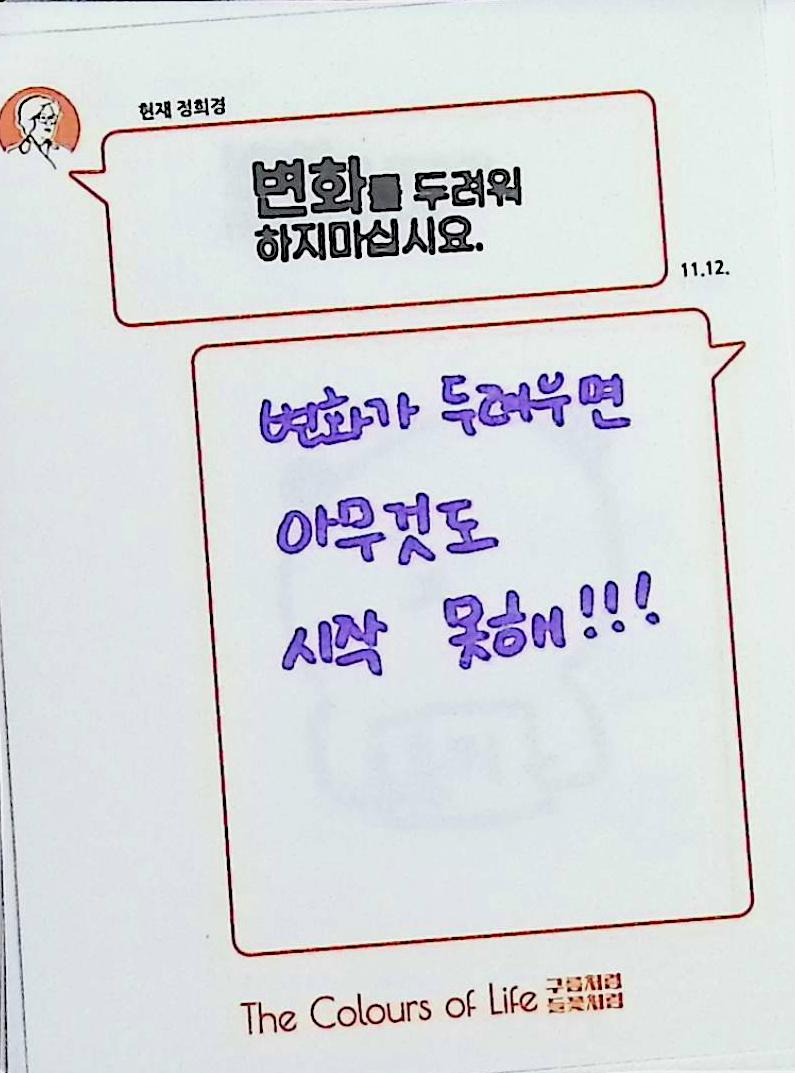 현재 정희경
변화를 두려워
하지마십시요.
11.12.
변화가 두려우면
아무것도
시작 못해!!!
The Colours of Life 구름처럼
들꽃처럼